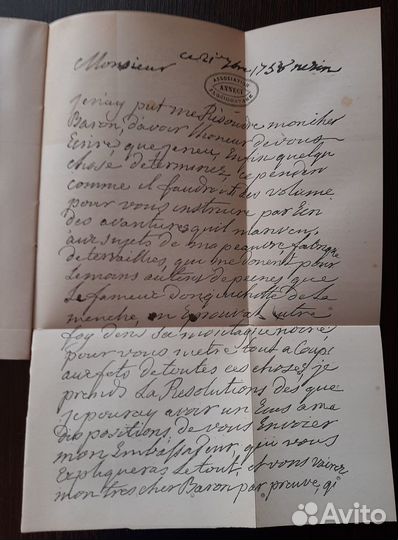 Monsieur
ce 21 7bre 1758
ASSOCIATION
ANNECY
FLORIMONTANE
je nay put me Résoudre mon cher
Baron, davoir lhoneur de vous
Ecrire que jeneu, Enfin quelque
chose determinez, cependen
comme il faudroit des volume
pour vous instruire par Ecri
des avantures qui marivey
aux sujets de ma peauvre fabrique
de terrailles, qui me donent pour
le moins autent de peines, que
le fameux donquichotte de la
manche, en Eprouvat autre
foy dens sa montagne noire,
pour vous metre tout a Coup
aux fets de toutes ces choses, je
prends La Resolutions des que
je pouray avoir un Ecus a ma
Dispositions de vous Envoier
mon Embassadeur, qui vous
Expliqueras Le tout, et vous vairez
mon tres cher Baron par preuve, q'
Avito